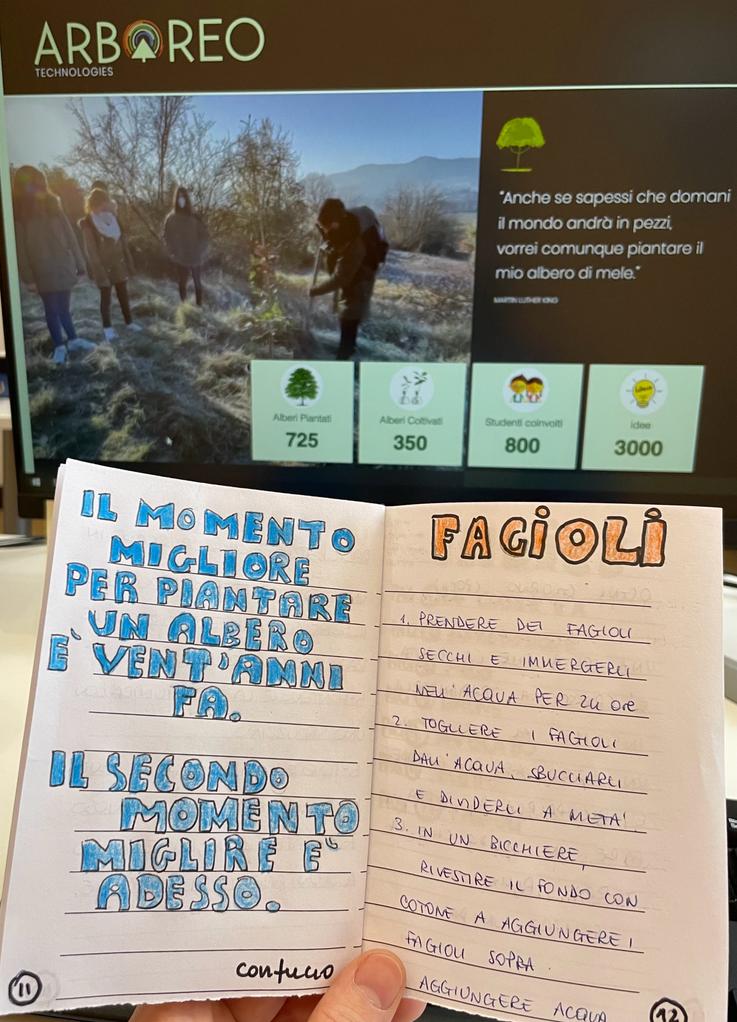 ARBOREO
TECHNOLOGIES
"Anche se sapessi che domani
il mondo andrà in pezzi,
vorrei comunque piantare il
mio albero di mele."
MARTIN LUTHER KING
Alberi Piantati
725
Alberi Coltivati
350
Studenti coinvolti
800
idee
3000
IL MOMENTO
MIGLIORE
PER PIANTARE
UN ALBERO
E' VENT'ANNI
FA.
IL SECONDO
MOMENTO
MIGLIRE E'
ADESSO.
confucio
11
FAGIOLI
1. PRENDERE DEI FAGIOLI
SECCHI E IMMERGERLI
NELL'ACQUA PER 24 ore
2. TOGLIERE I FAGIOLI
DALL'ACQUA, SBUCCIARLI
E DIVIDERLI A META'.
3. IN UN BICCHIERE,
RIVESTIRE IL FONDO CON
COTONE A AGGIUNGERE I
FAGIOLI SOPRA.
AGGIUNGERE ACQUA
12